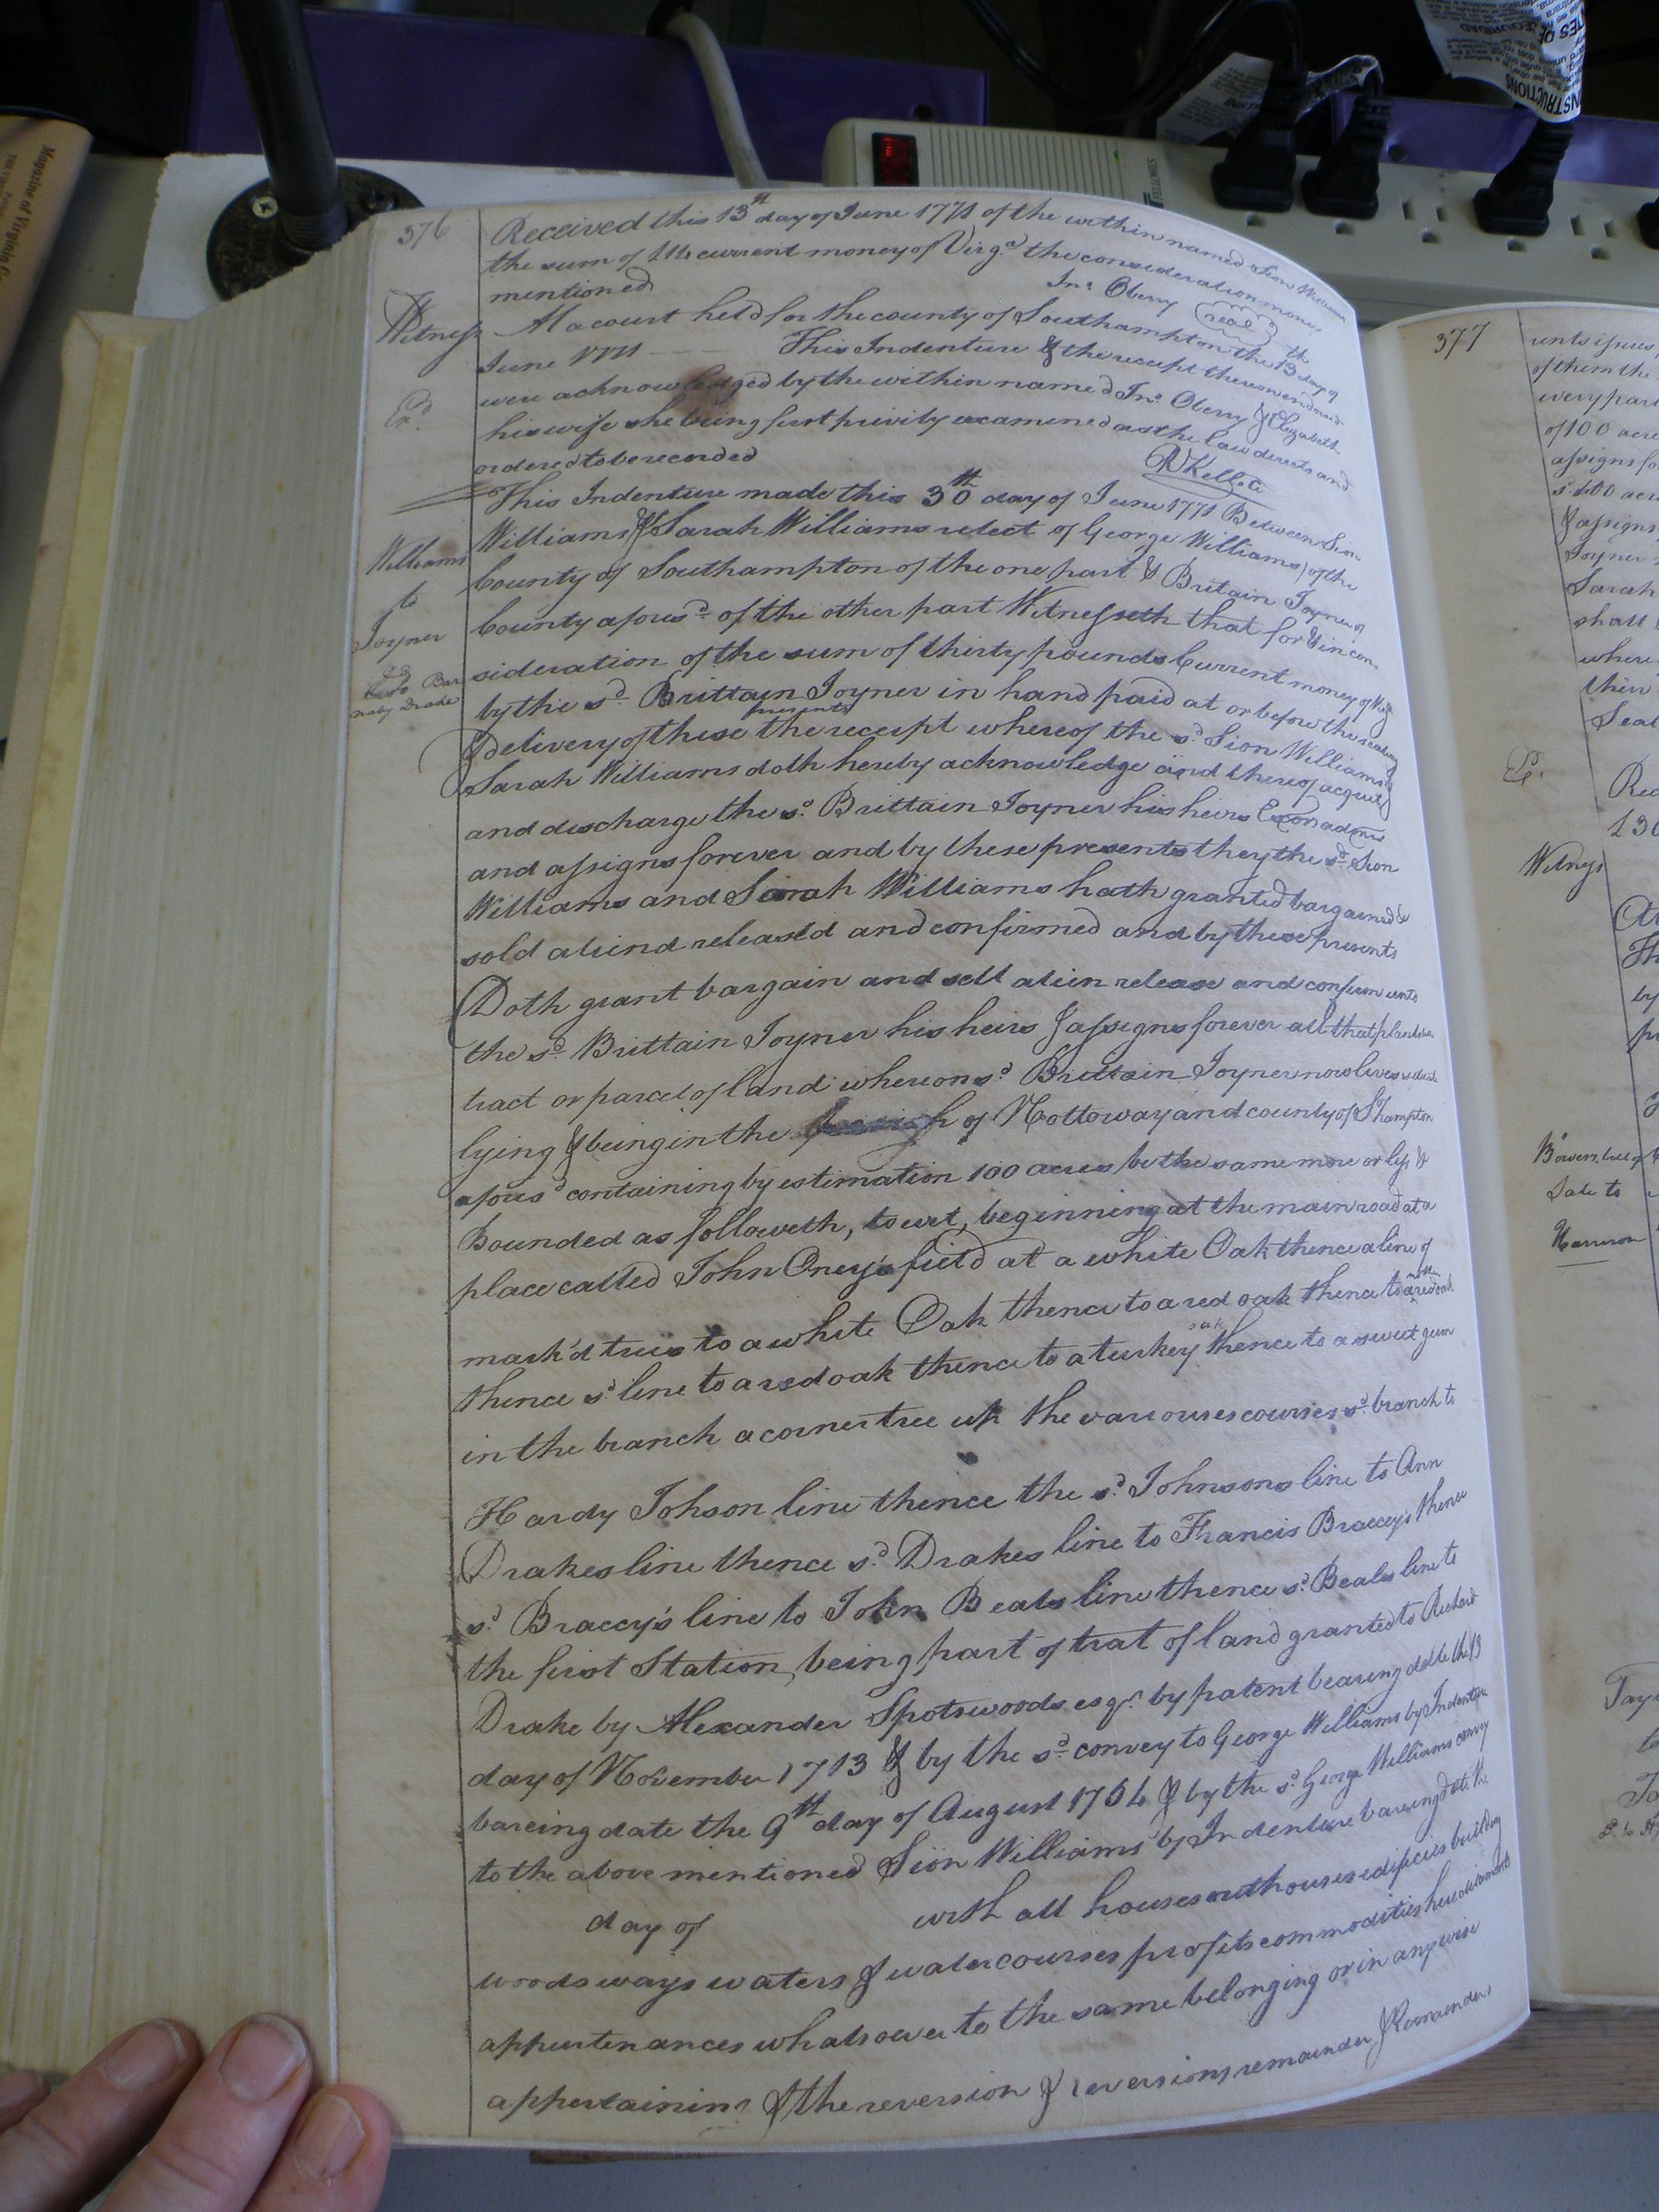 376
Received this 13th day of June 1771 of the within named Sion Williams
the sum of current money of Virga. the consideration money
mentioned
Jno Oberry
seal
Witness
At a court held for the county of Southampton the 13th day of
June 1771 This Indenture & the receipt thereon endorsed
were acknowledged by the within named Jno. Oberry & Elizabeth
Ex.d
his wife she being first privily examined as the law directs and
ordered to be recorded
RKello
This Indenture made this 30th day of June 1771 Between Sion
Williams & Sarah Williams relect of George Williams) of the
Williams
to
Joyner
County of Southampton of the one part & Britain Joyner of
County afores.d of the other part Witnesseth that for & in con-
sideration of the sum of thirty pounds Current money of
Bar
naby Drake
by the s.d Brittain Joyner in hand paid at or before the sealing &
Delivery of these presents the receipt whereof the s.d Sion Williams &
Sarah Williams doth hereby acknowledge and thereof acquit
and discharge the s.d Brittain Joyner his heirs Exors adms
and assigns forever and by these presents they the s.d Sion
Williams and Sarah Williams hath granted bargained &
sold aliend releasd and confirmed and by these presents
Doth grant bargain and sell alien release and confirm unto
the s.d Brittain Joyner his heirs & assigns forever all that plantation
tract or parcel of land whereon s.d Brittain Joyner now lives
lying & being in the parrish of Nottoway and county of S Hampton
afores.d containing by estimation 100 acres be the same more or less &
Bounded as followeth, to wit, beginning at the main road at a
place called John Oney's field at a white Oak thence a line of
mark'd trees to a white Oak thence to a red oak thence to a red oak
thence s.d line to a red oak thence to a turkey oak thence to a sweet gum
in the branch a corner tree up the various courses s.d branch to
Hardy Johson line thence the s.d Johnsons line to Ann
Drakes line thence s.d Drakes line to Francis Braccey's thence
s.d Braccy's line to John Beals line thence s.d Beals line to
the first Station, being part of trat of land granted to Richard
Drake by Alexander Spotswoods esqr. by patent bearing date the 13
day of November 1713 & by the s.d convey to George Williams by Indenture
bareing date the 9th day of August 1764 & by the s.d George Williams convey
to the above mentioned Sion Williams by Indenture bareing date the
day of with all houses outhouses edificies building
woods ways waters & watercourses profits commodities hereditaments
appurtenances whatsoever to the same belonging or in anywise
appertaining & the reversion & reversions remainder & Remainders
377
rents issues
of them the
every par
of 100 acre
assigns fo
s.d 100 acre
& assigns
Joyner
Sarah
shall
where
their
Seal
Rec
£30
Witness
At
Th
by
Sale to
Harrison
Magazine of Virginia
FELLOWES
INSTRUCTIONS